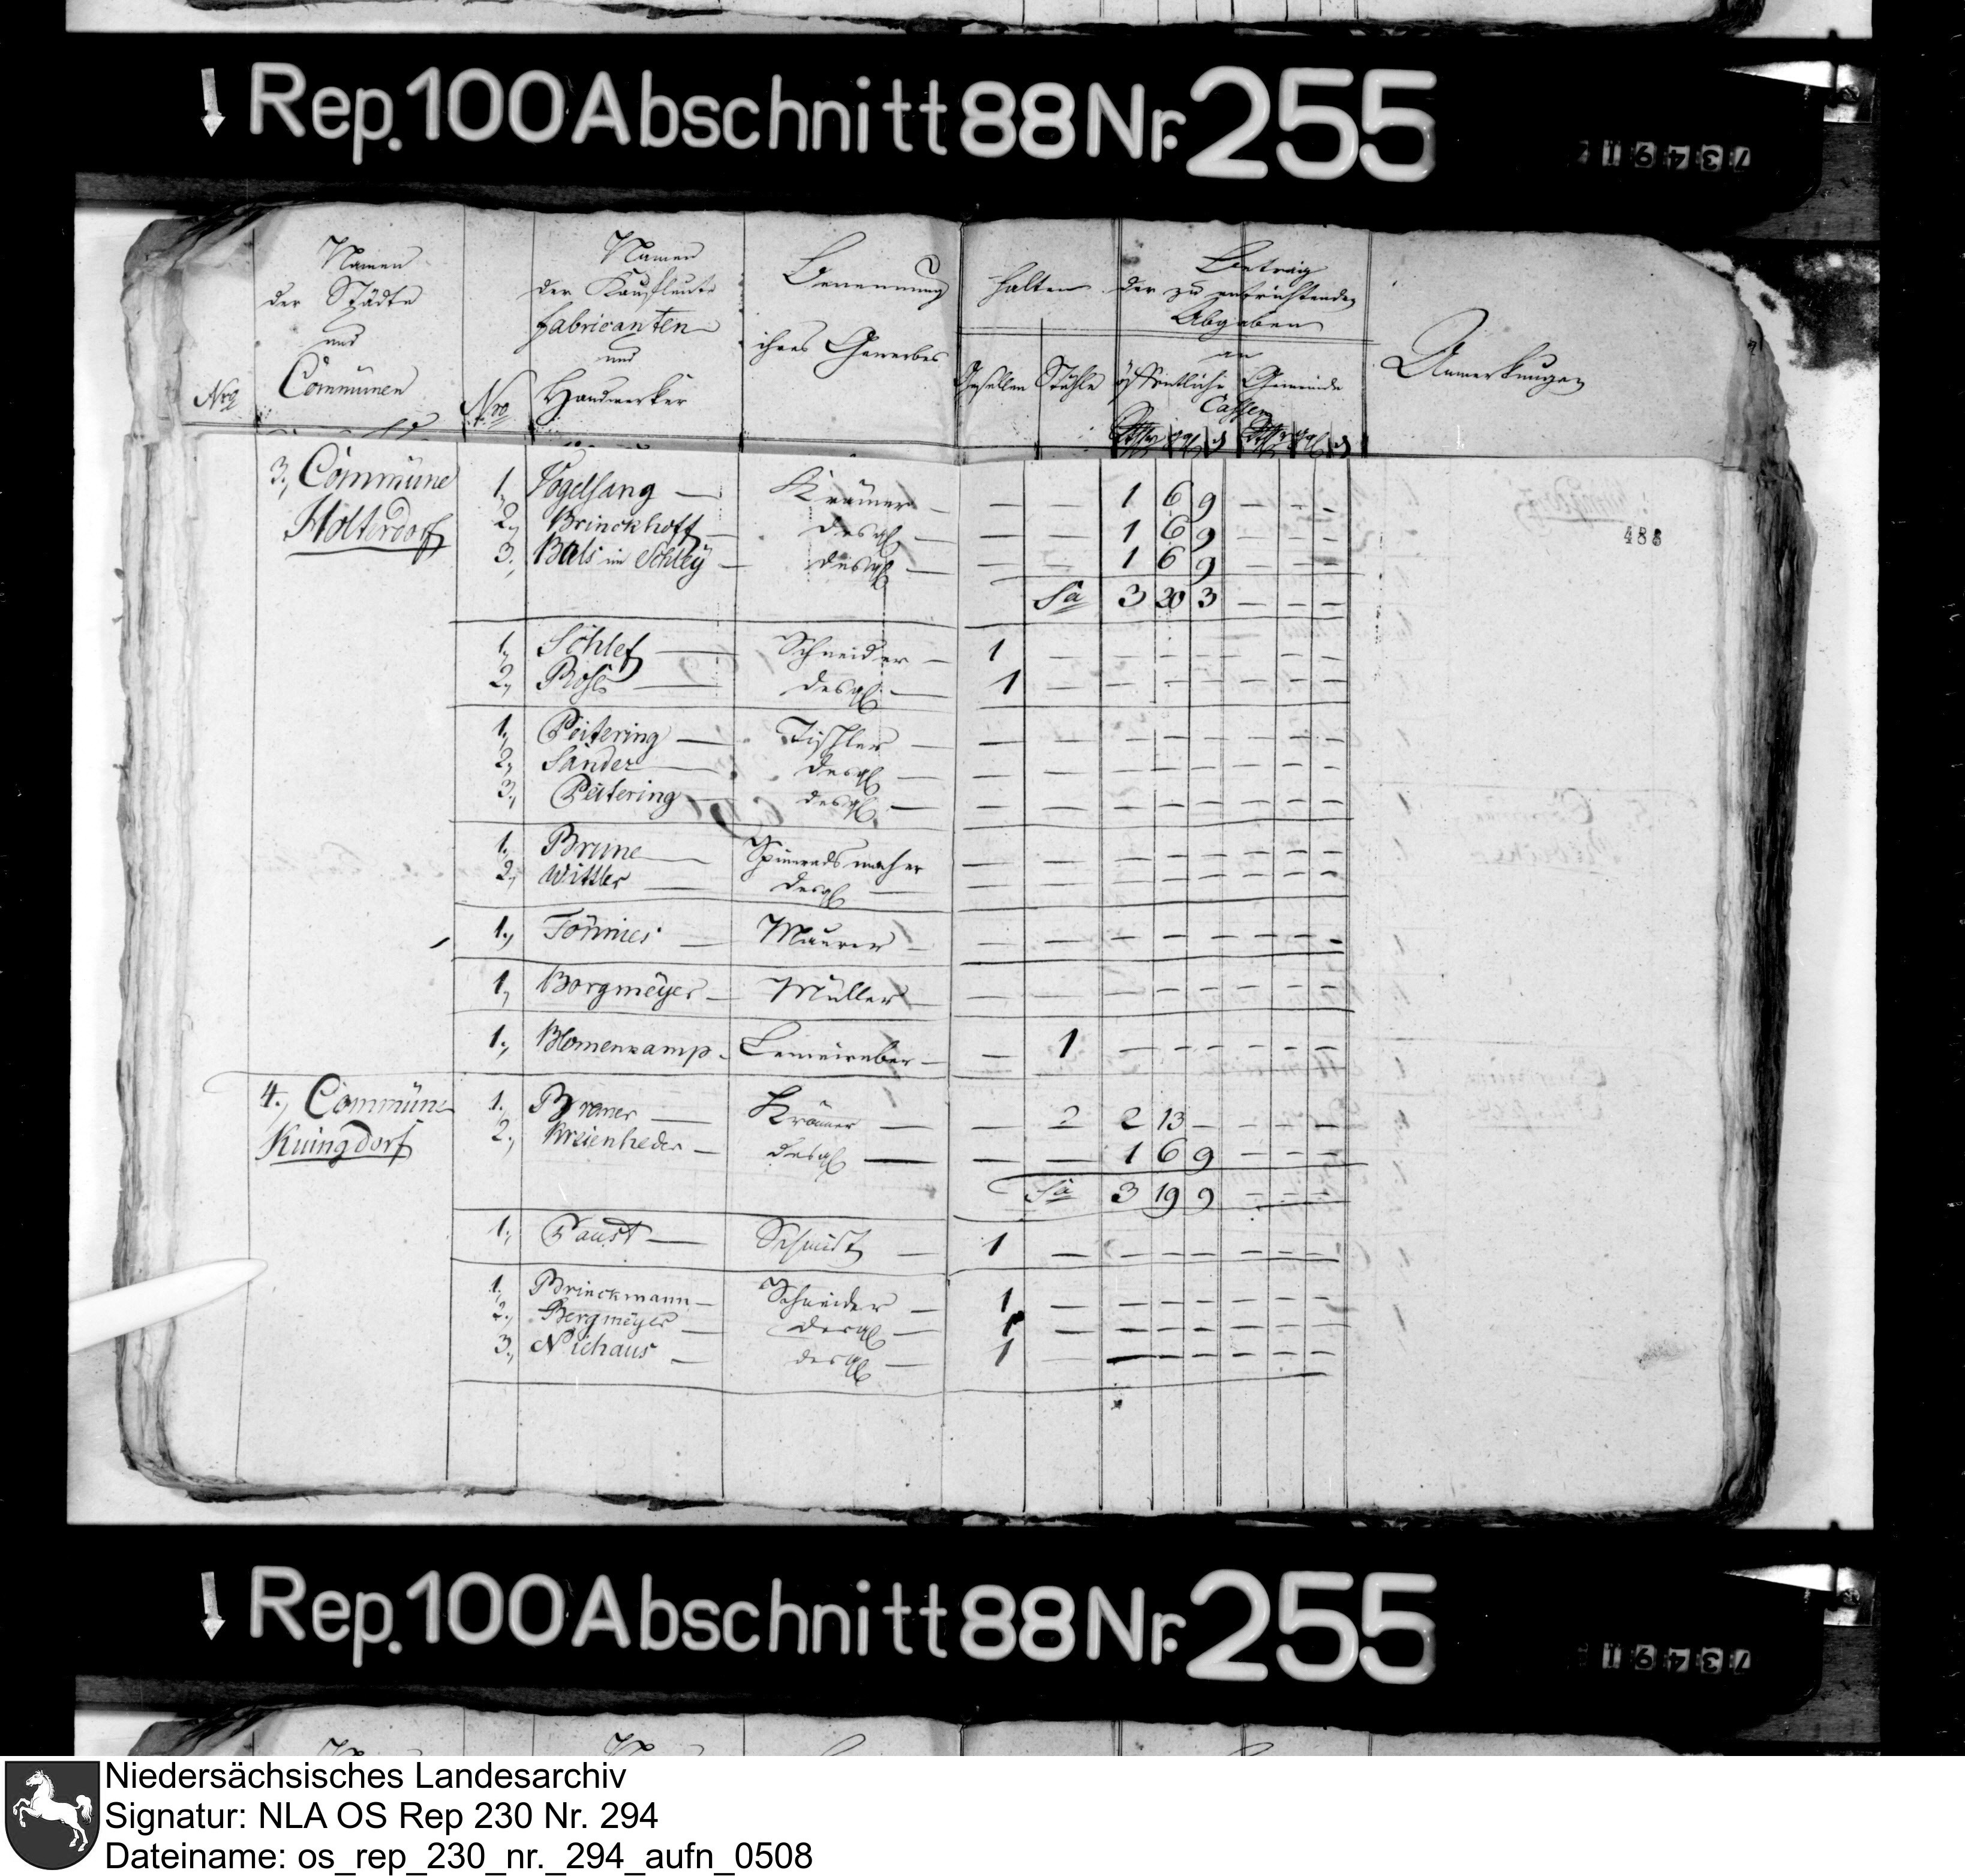 Rep. 100 Abschnitt 88 Nr. 255
Nro
Namen
der Städte
und
Commünen
Nro
Namen
der Kaufleute
Fabricanten
und
Handwerker
Benennung
ihres Gewerbes
halten
Gesellen Stühle
Betrag
der zu entrichtenden
Abgaben
an
öffentliche Gemeinde
Cassen
Anmerkungen
488
3., Commüne
Holterdorf
1., Vogelsang — Krämer — — — 1 6 9 — — —
2., Brinckhoff — desgl — — — 1 6 9 — — —
3., Bals im Schley — desgl — — — 1 6 9 — — —
Sa 3 20 3 — — —
1., Schlef — Schneider — 1 — — — — — — —
2., — desgl — 1 — — — — — — —
1., Peitering — Tischler — — — — — — — — —
2., Sander — desgl — — — — — — — — —
3., Peitering — desgl — — — — — — — — —
1., Brune — Spinnradsmacher — — — — — — — —
2., Wittler — desgl — — — — — — — — —
1., Tönnies — Maurer — — — — — — — — —
1., Borgmeyer — Müller — — — — — — — — —
1., Blomenkamp — Leineweber — — 1 — — — — — —
4., Commüne
Kuingdorf
1., — Krämer — — 2 2 13 — — — —
2., — desgl — — — 1 6 9 — — —
Sa 3 19 9 — — —
1., Faust — Schmidt — 1 — — — — — — —
1., Brinckmann — Schneider — 1 — — — — — — —
2., Bergmeyer — desgl — 1 — — — — — — —
3., Niehaus — desgl — 1 — — — — — — —
Rep. 100 Abschnitt 88 Nr. 255
Niedersächsisches Landesarchiv
Signatur: NLA OS Rep 230 Nr. 294
Dateiname: os_rep_230_nr._294_aufn_0508